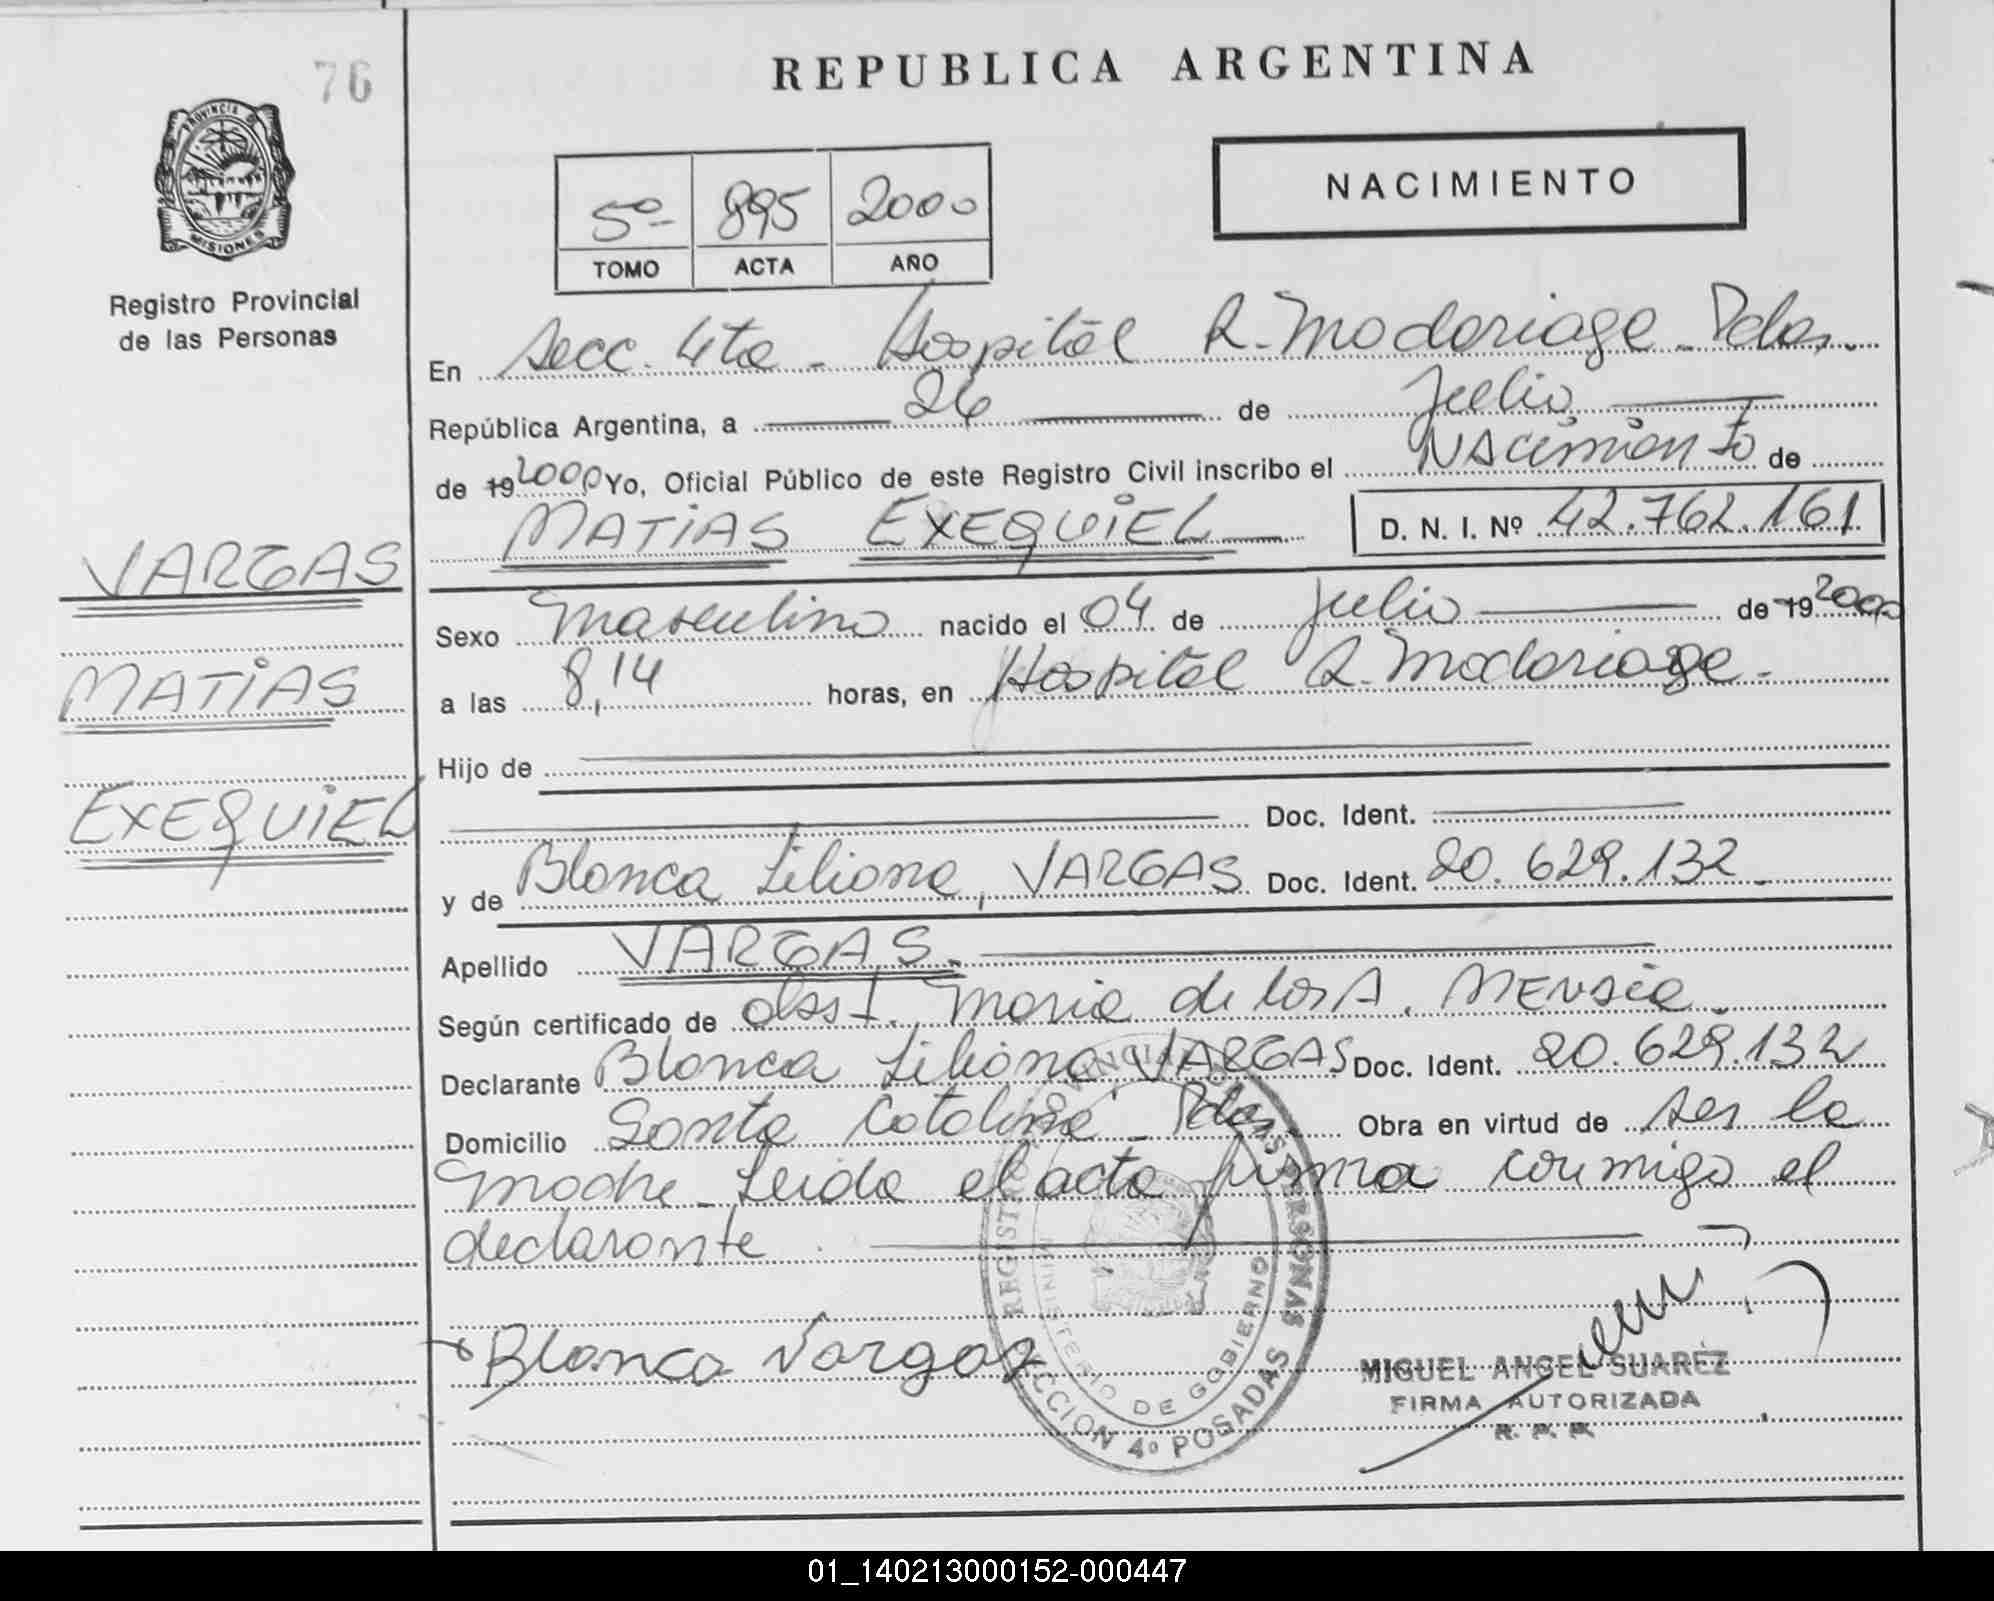 76
REPUBLICA ARGENTINA
PROVINCIA DE
MISIONES
Registro Provincial
de las Personas
5º 895 2000
TOMO ACTA AÑO
NACIMIENTO
En Secc. 4ta - Hospital R. Madariaga - Pdas.
República Argentina, a 26 de Julio
de 19 2000 Yo, Oficial Público de este Registro Civil inscribo el Nacimiento de
MATIAS EXEQUIEL D. N. I. Nº 42.762.161
VARGAS
MATIAS
EXEQUIEL
Sexo Masculino nacido el 04 de Julio de 19 2000
a las 8,14 horas, en Hospital R. Madariaga.
Hijo de
Doc. Ident.
y de Blanca Liliana, VARGAS Doc. Ident. 20.629.132
Apellido VARGAS.
Según certificado de obst. Maria de los A. MENSIA.
Declarante Blanca Liliana VARGAS Doc. Ident. 20.629.132
Domicilio Santa Catalina - Pdas. Obra en virtud de ser la
madre - Leida el acta firma conmigo el
declarante
Blanca Vargas
REGISTRO PROVINCIAL DE LAS PERSONAS
MINISTERIO DE GOBIERNO
SECCION 4º POSADAS
MIGUEL ANGEL SUAREZ
FIRMA AUTORIZADA
01_140213000152-000447